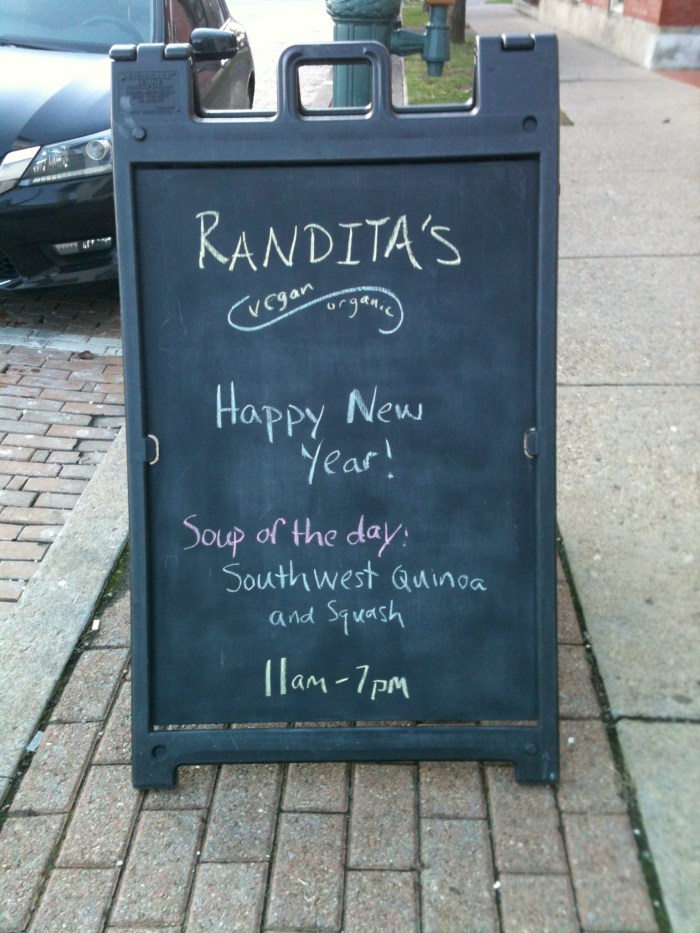 RANDITA'S
vegan organic
Happy New
Year!
Soup of the day:
Southwest Quinoa
and Squash
11am-7pm